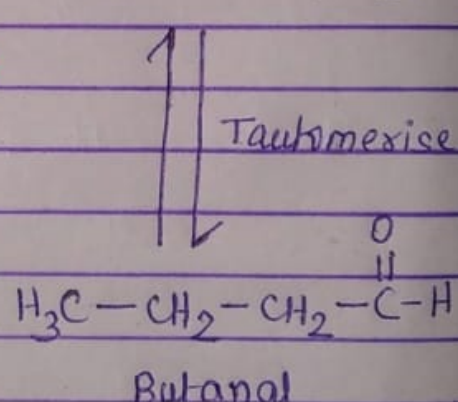 Tautomerise
O
||
H₃C–CH₂–CH₂–C–H
Butanal